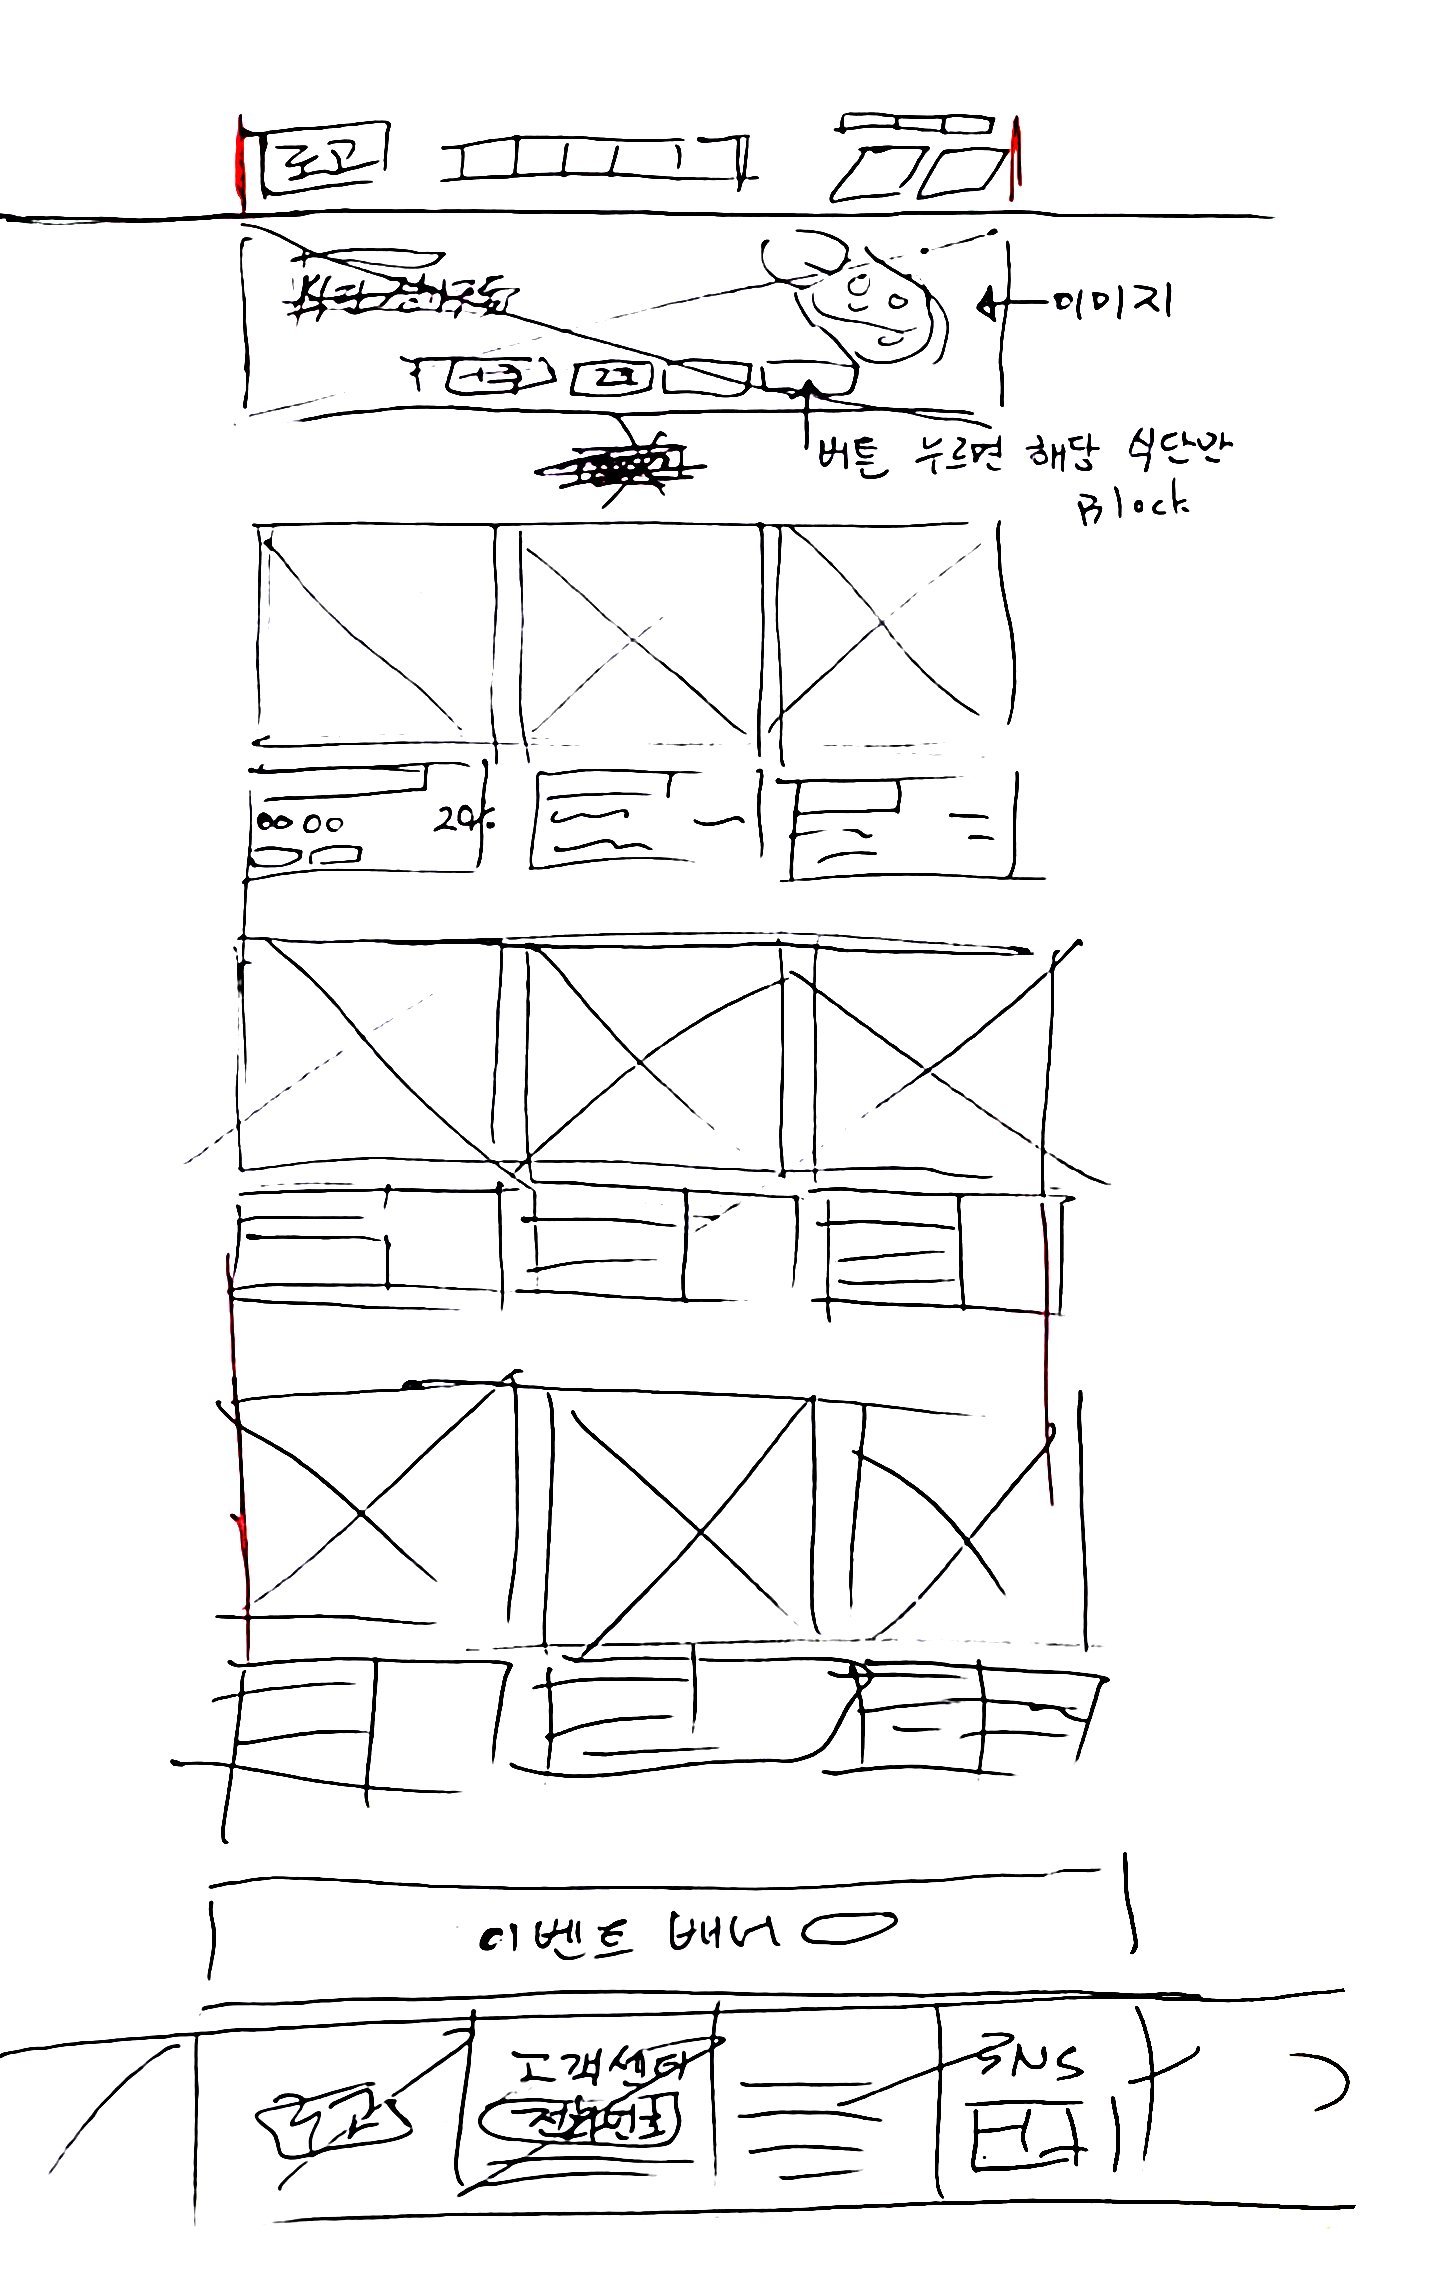 로고
이미지
버튼 누르면 해당 식단만
Block
20%
이벤트 배너
로고
고객센터
전화번호
SNS